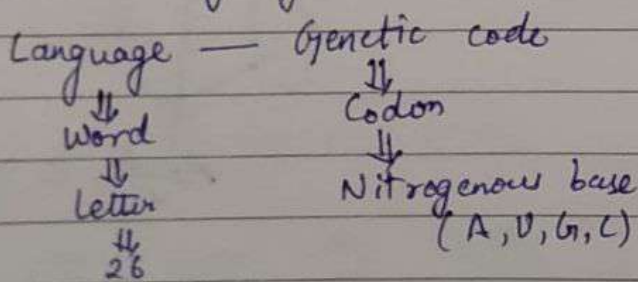 Language — Genetic code
⇓ ⇓
Word Codon
⇓ ⇓
Letter Nitrogenous base
⇓ (A, U, G, C)
26